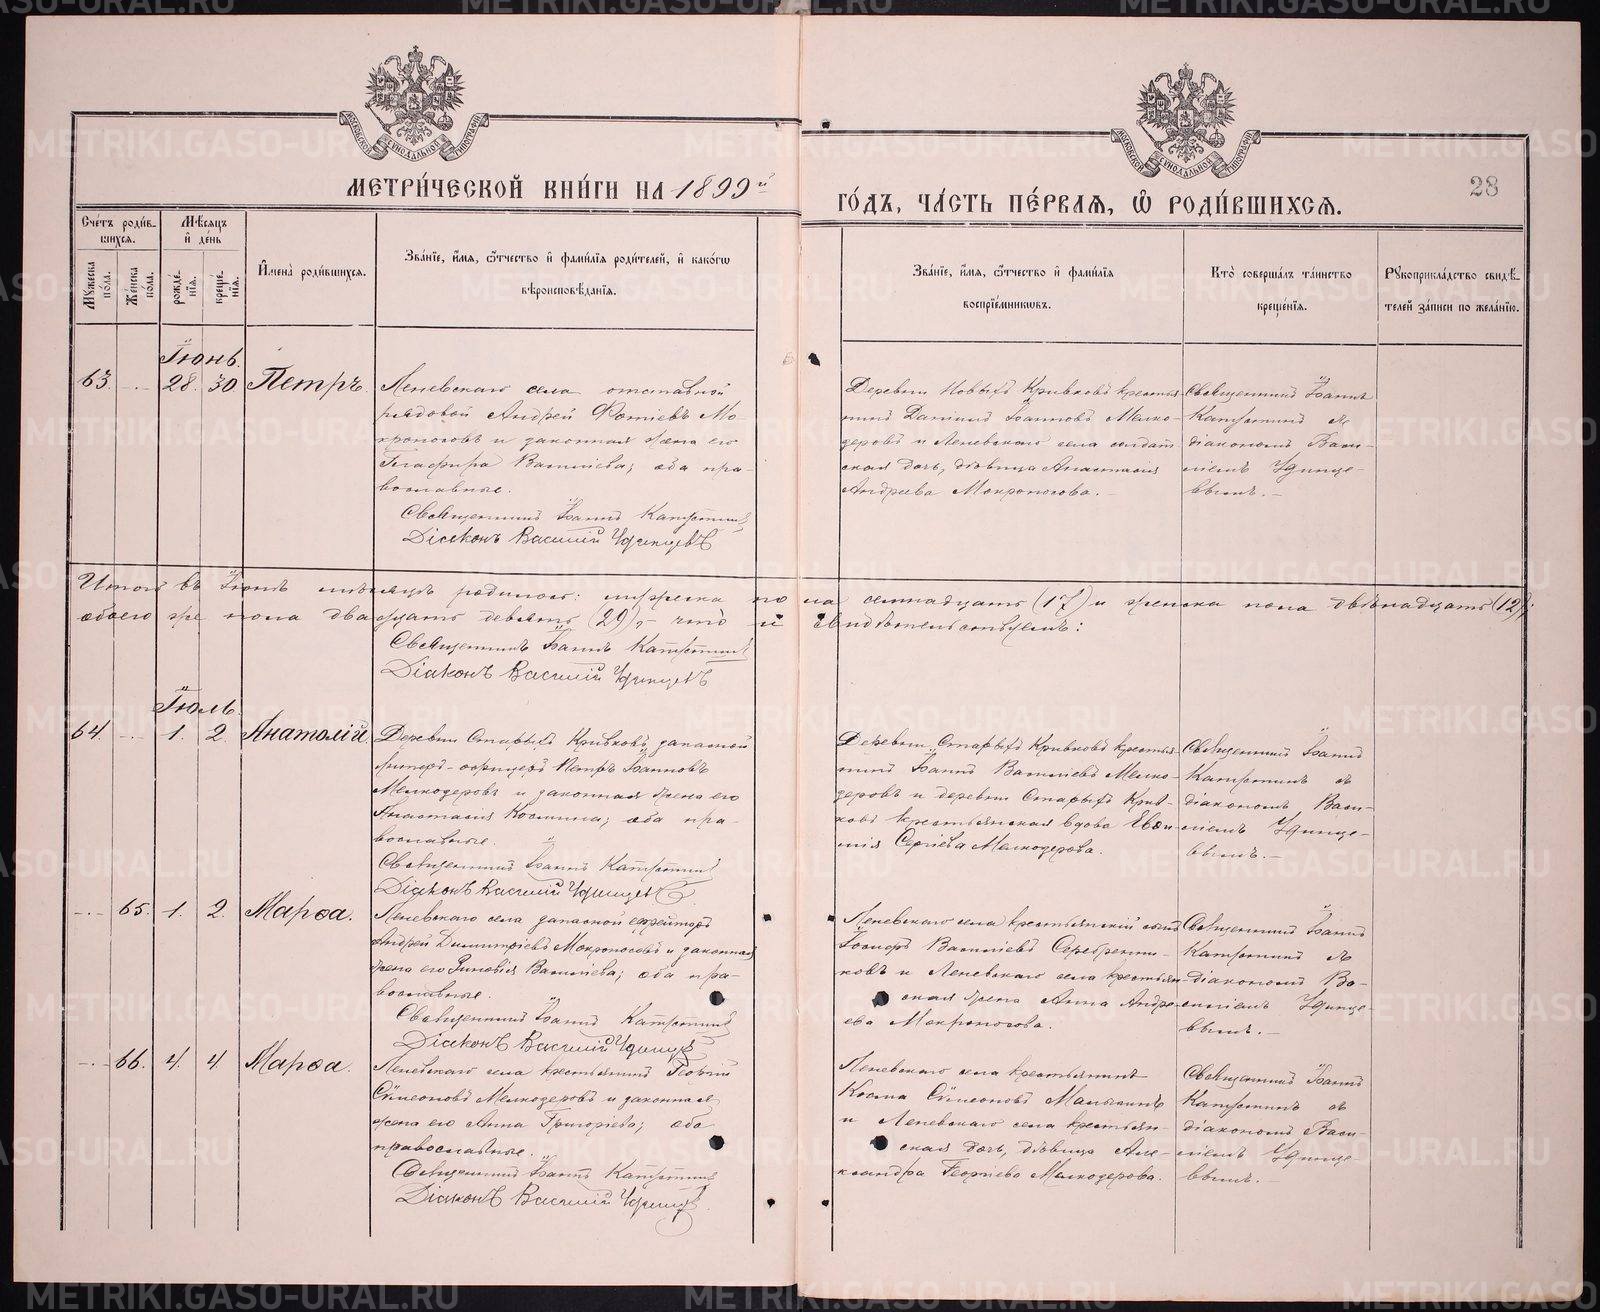 МЕТРИ́ЧЕСКОЙ КНИ́ГИ НА 1899й
ГО́ДЪ, ЧА́СТЬ ПЕ́РВАЯ, Ѽ РОДИ́ВШИХСЯ.
28
Сче́тъ роди́в-
шихся.
Мѣ́сяцъ
и҆ де́нь
Му́жеска
по́ла.
Же́нска
по́ла.
рожде́-
нїя.
креще́-
нїя.
И҆мена̀ роди́вшихся.
Зва́нїе, и҆́мя, ѻ҆́тчество и҆ фами́лїя роди́телей, и҆ како́гѡ
вѣроисповѣ́данїя.
Зва́нїе, и҆́мя, ѻ҆́тчество и҆ фами́лїя
воспрїе́мникѡвъ.
Кто̀ соверша́лъ та́инство
креще́нїя.
Рꙋкоприкла́дство свидѣ́-
телей за́писи по жела́нїю.
Іюнь.
63. 28. 30 Петръ.
Леневскаго села отставной
рядовой Андрей Фотіевъ Мо-
кроносовъ и законная жена его
Глафира Василіева; оба пра-
вославные.
Священникъ Іоаннъ
Діаконъ Василій Удинцевъ
Деревни Новыхъ Кривковъ крестья-
нинъ Даніилъ Іоанновъ Мелко-
зеровъ и Леневскаго села солдат-
ская дочь, дѣвица Анастасія
Андреева Мокроносова. -
Священникъ Іоаннъ
съ
діакономъ Васи-
ліемъ Удинце-
вымъ. -
Итого въ Іюнѣ мѣсяцѣ родилось: мужеска пола семнадцать (17) и женска пола двѣнадцать (12),
обоего же пола двадцать девять (29), - что и свидѣтельствуемъ:
Священникъ Іоаннъ
Діаконъ Василій Удинцевъ
Іюль.
64. 1. 2. Анатолій.
Деревни Старыхъ Кривковъ запасной
унтеръ-офицеръ Петръ Іоанновъ
Мелкозеровъ и законная жена его
Анастасія Космина; оба пра-
вославные.
Священникъ Іоаннъ
Діаконъ Василій Удинцевъ
Деревни Старыхъ Кривковъ крестья-
нинъ Іоаннъ Василіевъ Мелко-
зеровъ и деревни Старыхъ Крив-
ковъ крестьянская вдова
Сергіева Мелкозерова.
Священникъ Іоаннъ
съ
діакономъ Васи-
ліемъ Удинце-
вымъ. -
65. 1. 2. Марѳа.
Леневскаго села запасной ефрейторъ
Андрей Димитріевъ Мокроносовъ и законная
жена его Зиновія Василіева; оба пра-
вославные.
Священникъ Іоаннъ
Діаконъ Василій Удинцевъ
Леневскаго села крестьянскій сынъ
Василіевъ Серебренни-
ковъ и Леневскаго села крестьян-
ская жена Анна Андре-
ева Мокроносова.
Священникъ Іоаннъ
съ
діакономъ Ва-
силіемъ Удинце-
вымъ. -
66. 4. 4. Марѳа.
Леневскаго села крестьянинъ Георгій
Сѵмеоновъ Мелкозеровъ и законная
жена его Анна Григоріева; оба
православные.
Священникъ Іоаннъ
Діаконъ Василій Удинцевъ
Леневскаго села крестьянинъ
Косма Сѵмеоновъ
и Леневскаго села крестьян-
ская дочь, дѣвица Але-
ксандра Георгіева Мелкозерова.
Священникъ Іоаннъ
съ
діакономъ Васи-
ліемъ Удинце-
вымъ. -
METRIKI.GASO-URAL.RU